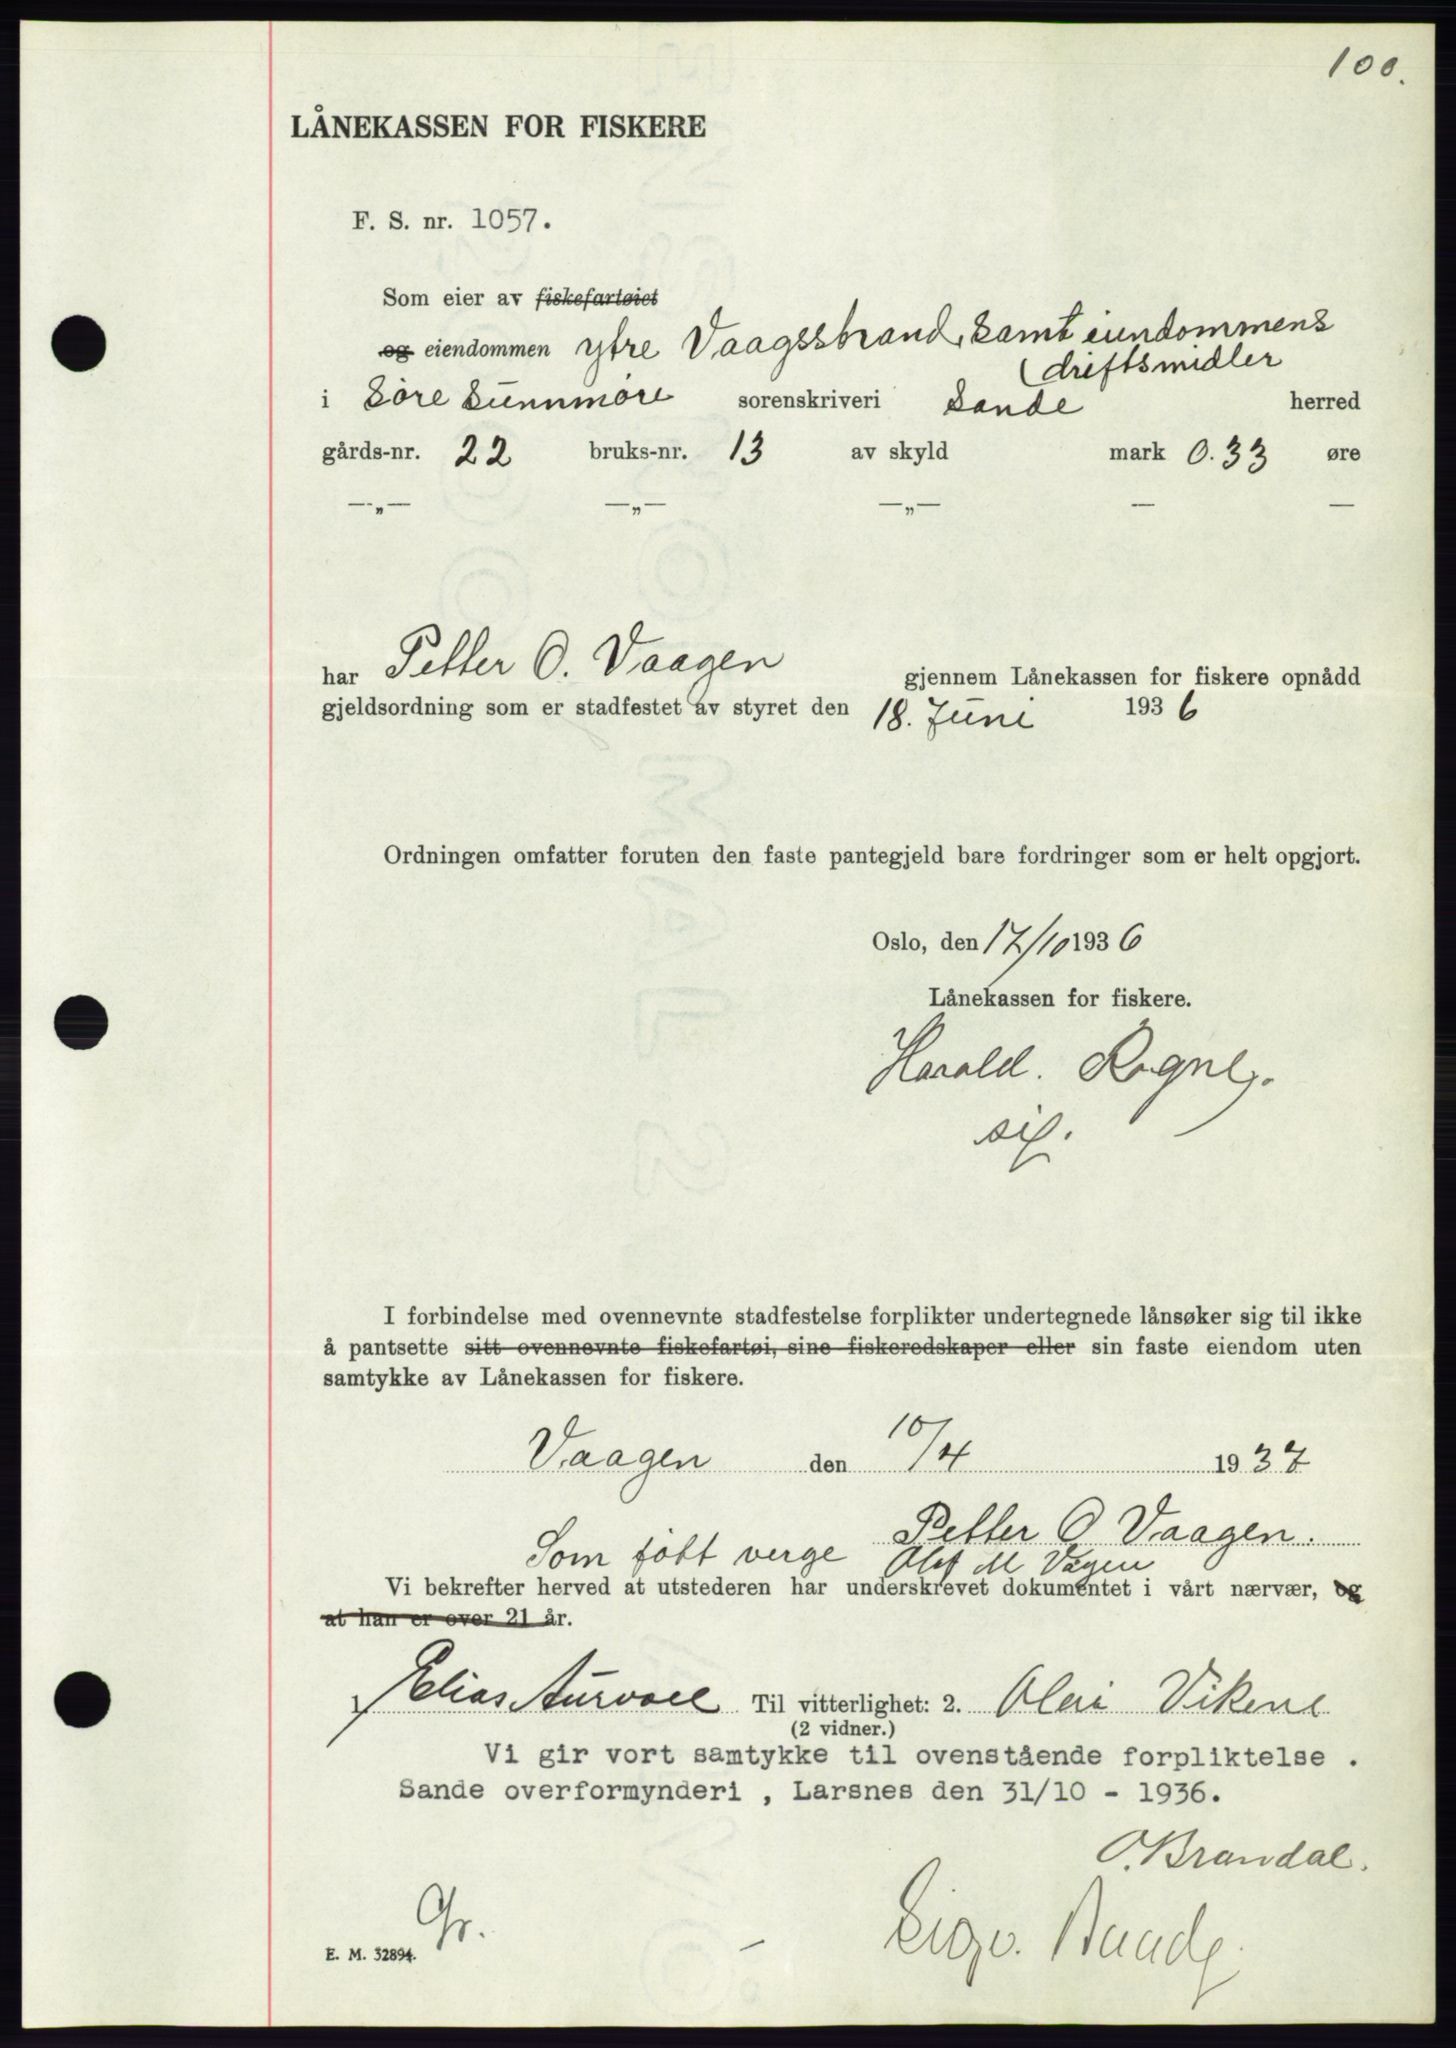 100.
LÅNEKASSEN FOR FISKERE
F. S. nr. 1057.
Som eier av fiskefartøiet
og eiendommen ytre Vaagsstrand, samt eiendommens
driftsmidler
i Söre Sunnmöre sorenskriveri Sande herred
gårds-nr. 22 bruks-nr. 13 av skyld mark 0.33 øre
—„— —„— —„— — —
har Petter O. Vaagen gjennem Lånekassen for fiskere opnådd
gjeldsordning som er stadfestet av styret den 18. Juni 1936
Ordningen omfatter foruten den faste pantegjeld bare fordringer som er helt opgjort.
Oslo, den 17/10 1936
Lånekassen for fiskere.
Harald. Rogne.
sig.
I forbindelse med ovennevnte stadfestelse forplikter undertegnede lånsøker sig til ikke
å pantsette sitt ovennevnte fiskefartøi, sine fiskeredskaper eller sin faste eiendom uten
samtykke av Lånekassen for fiskere.
Vaagen den 10/4 1937
Petter O Vaagen.
Som født verge Olaf M Vågen
Vi bekrefter herved at utstederen har underskrevet dokumentet i vårt nærvær, og
at han er over 21 år.
1. Elias Aurvoll Til vitterlighet: 2. Olai Vikene
(2 vidner.)
Vi gir vort samtykke til ovenstående forpliktelse .
Sande overformynderi , Larsnes den 31/10 - 1936.
O. Brandal.
Sigv.
Gr.
E. M. 32894.